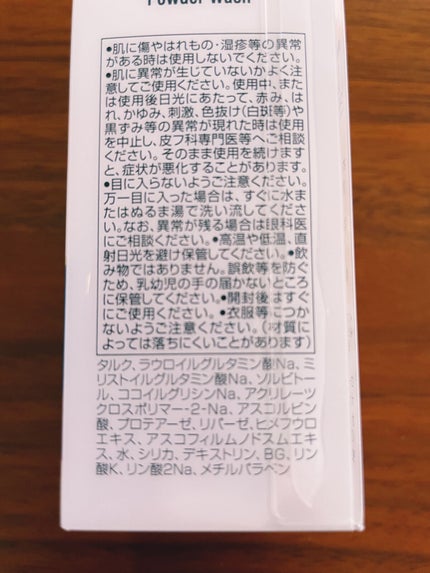 Powder Wash
•肌に傷やはれもの・湿疹等の異常
がある時は使用しないでください。
•肌に異常が生じていないかよく注
意してご使用ください。使用中、また
は使用後日光にあたって、赤み、は
れ、かゆみ、刺激、色抜け(白斑等)や
黒ずみ等の異常が現れた時は使用
を中止し、皮フ科専門医等へご相談
ください。そのまま使用を続けます
と、症状が悪化することがあります。
•目に入らないようご注意ください。
万一目に入った場合は、すぐに水ま
たはぬるま湯で洗い流してくださ
い。なお、異常が残る場合は眼科医
にご相談ください。•高温や低温、直
射日光を避け保管してください。•飲
み物ではありません。誤飲等を防ぐ
ため、乳幼児の手の届かないところ
に保管してください。•開封後はすぐ
にご使用ください。•衣服等につか
ないようご注意ください。(材質に
よっては落ちにくいことがあります)
タルク、ラウロイルグルタミン酸Na、ミ
リストイルグルタミン酸Na、ソルビトー
ル、ココイルグリシンNa、アクリレーツ
クロスポリマー-2-Na、アスコルビン
酸、プロテアーゼ、リパーゼ、ヒメフウロ
エキス、アスコフィルムノドスムエキ
ス、水、シリカ、デキストリン、BG、リン
酸K、リン酸2Na、メチルパラベン